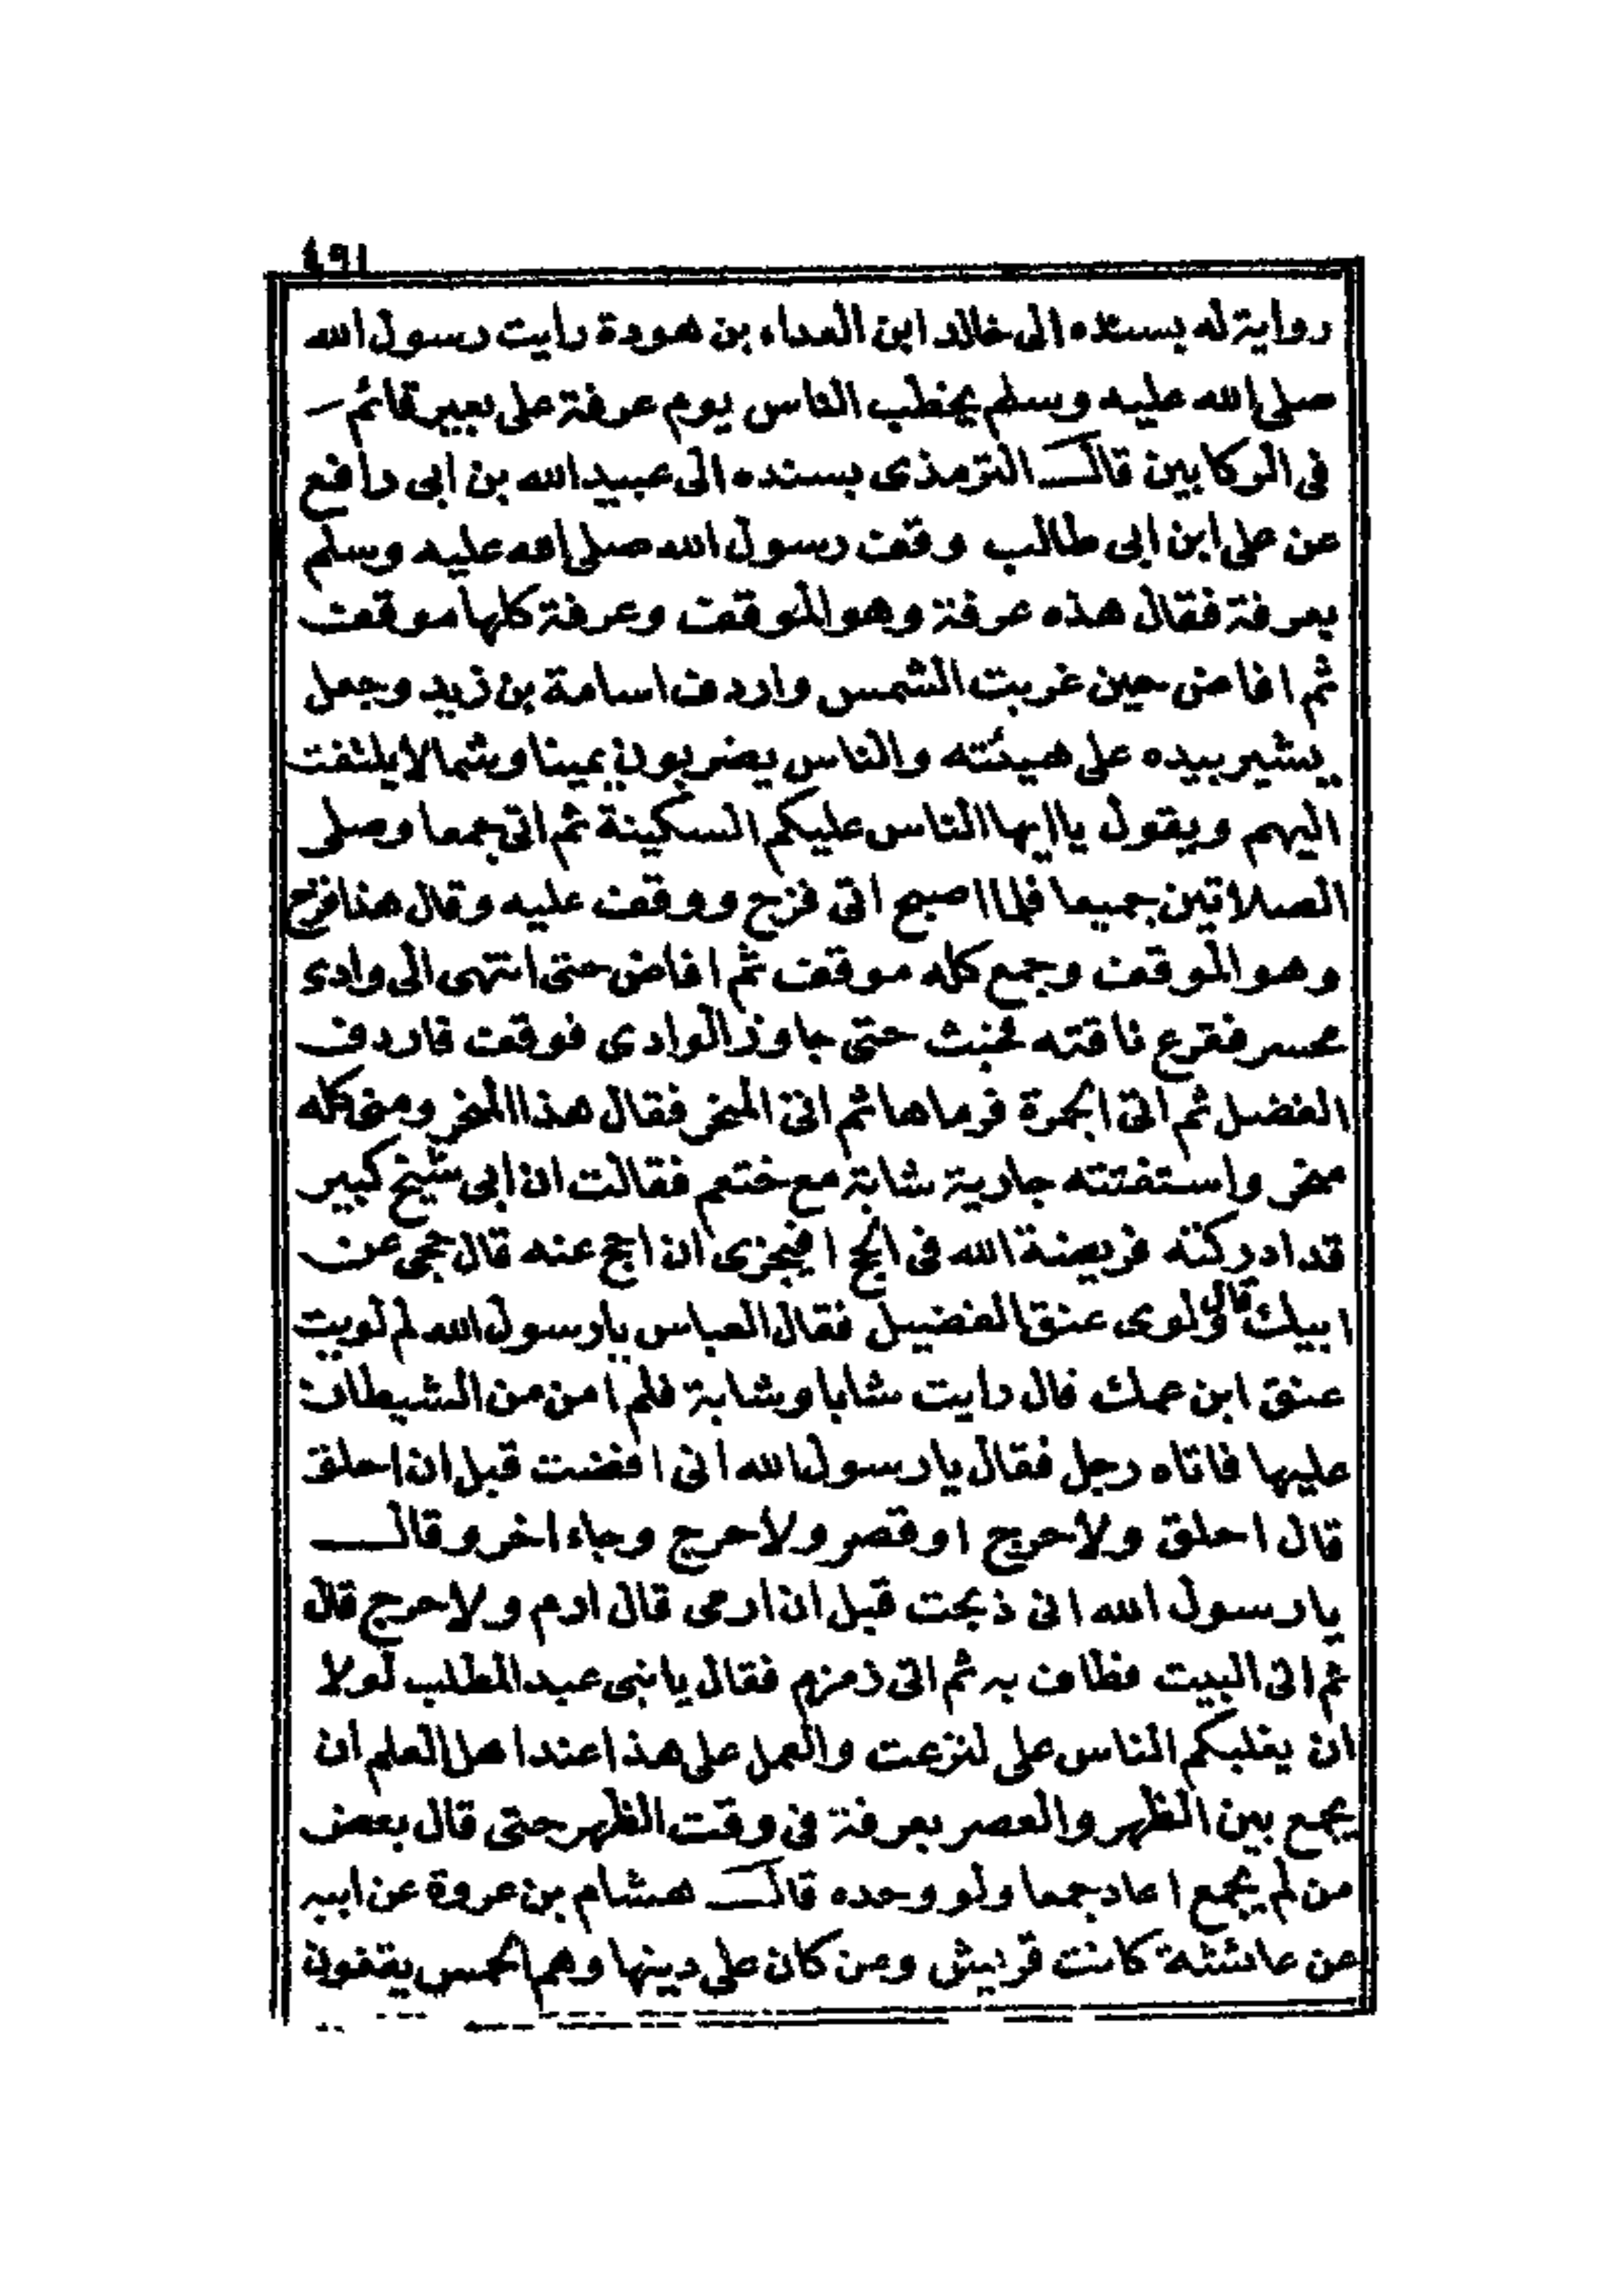 ٤٩١
رواية له بسنده الى خالد ابن العداء بن هودة رايت رسول الله
صلى الله عليه وسلم يخطب الناس يوم عرفة على بعير قائم
فى الركابين قال الترمذى بسنده الى عبيد الله بن ابى رافع
عن على ابن ابى طالب وقف رسول الله صلى الله عليه وسلم
بعرفة فقال هذه عرفة وهو الموقف وعرفة كلها موقف
ثم افاض حين غربت الشمس واردف اسامة بن زيد وجعل
يشير بيده على هيئته والناس يضربون يمينا وشمالا يلتفت
اليهم ويقول يا ايها الناس عليكم السكينة ثم اتى جمعا وصلى
الصلاتين جميعا فلما اصبح اتى قزح ووقف عليه وقال هذا قزح
وهو الموقف وجمع كله موقف ثم افاض حتى انتهى الى وادى
محسر فقرع ناقته فخبث حتى جاوز الوادى فوقف فاردف
الفضل ثم اتى الجمرة فرماها ثم اتى المنحر فقال هذا المنحر ومنى كله
منحر واستفتته جارية شابة مع ختعم فقالت ان ابى شيخ كبير
قد ادركته فريضة الله فى الحج افيجزى ان احج عنه قال حجى عن
ابيك قال ولوى عنق الفضيل فقال العباس يا رسول الله لم لويت
عنق ابن عمك قال رايت شابا وشابة فلم امن من الشيطان
عليها فاتاه رجل فقال يا رسول الله انى افضت قبل ان احلق
قال احلق ولا حرج او قصر ولا حرج وجاء اخر وقال
يا رسول الله انى ذبحت قبل ان ارمى قال ارم ولا حرج قال
ثم اتى البيت فطاف به ثم اتى زمزم فقال يا بنى عبد المطلب لولا
ان يغلبكم الناس على لنزعت والعمل على هذا عند اهل العلم ان
يجمع بين الظهر والعصر بعرفة فى وقت الظهر حتى قال بعض
من لم يجمع اعاد جمعا ولو وحده قال هشام بن عروة عن ابيه
عن عائشة كانت قريش ومن كان على دينها وهم الحمس يقفون